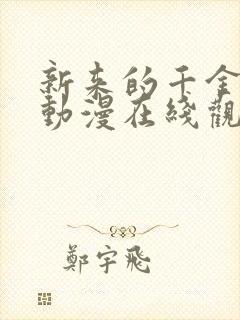 新来的千金
動漫在綫觀
鄭宇飛